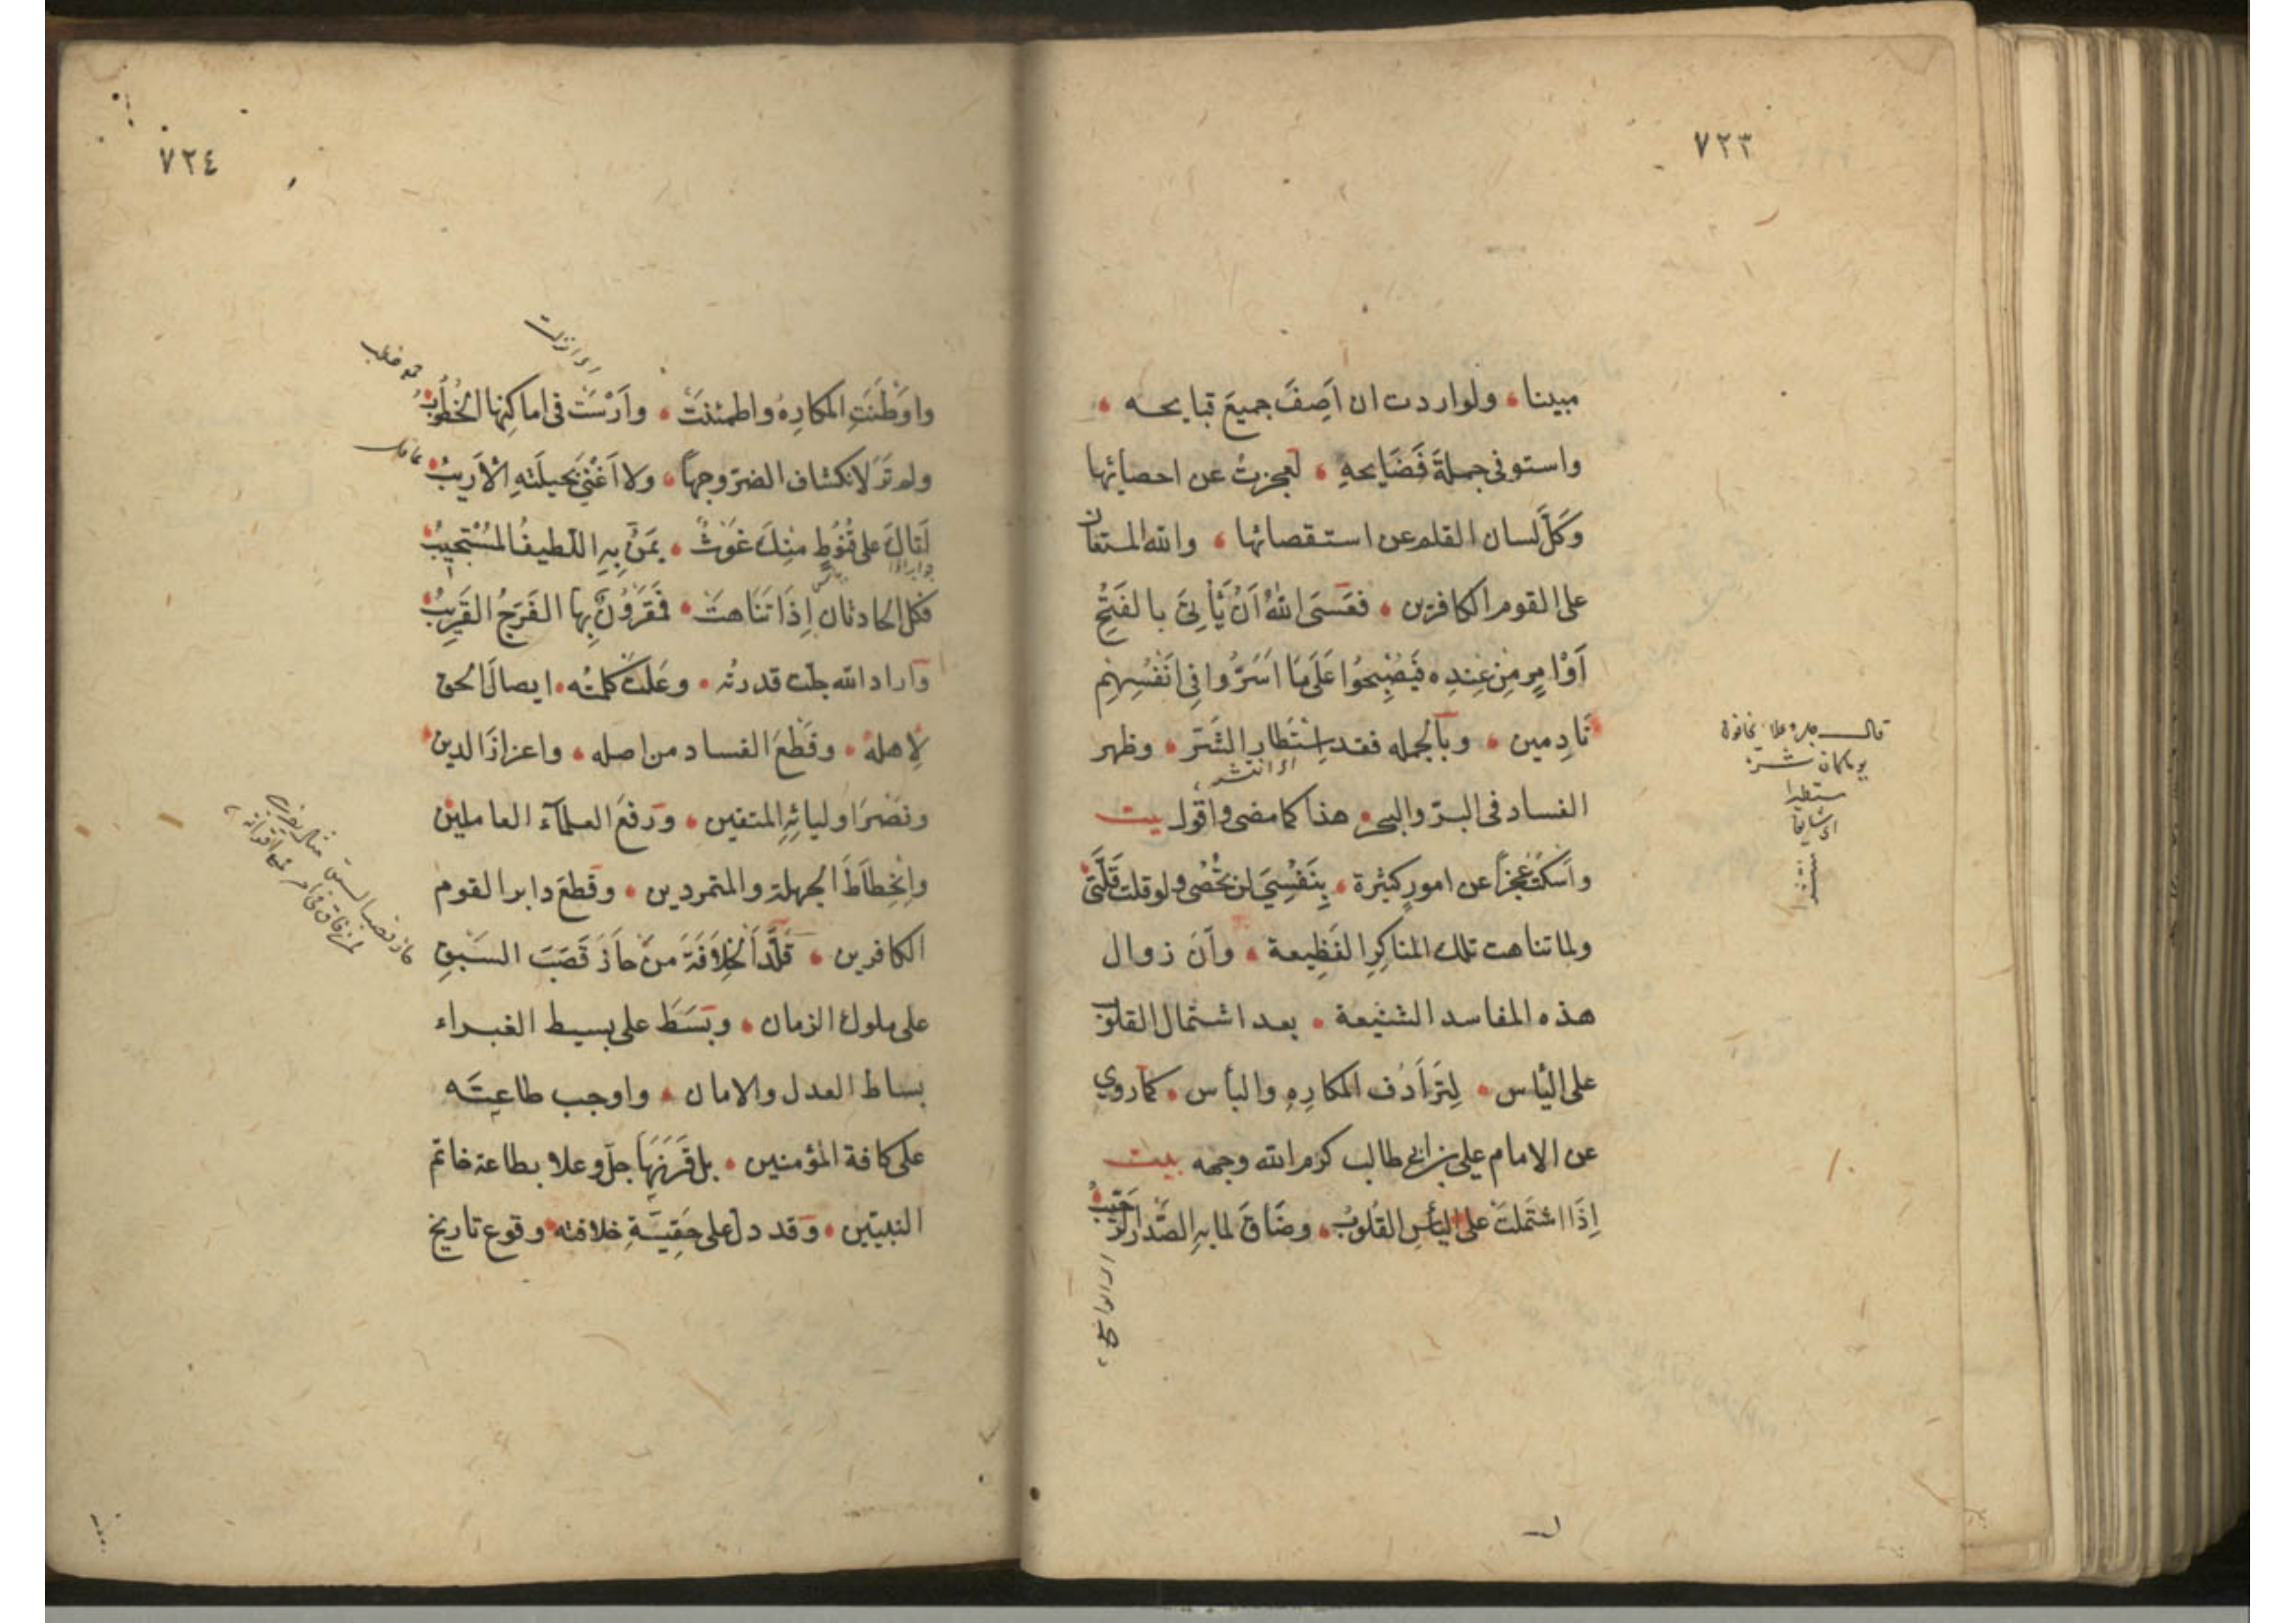 ٧٢٣
مبينا ولو اردت ان اَصِفَ جميعَ قبايحه
واستوفى جملةَ فَضَايحهِ لعجزتُ عن احصائها
وَكَلَّ لسان القلم عن استقصائها والله المستعان
على القوم الكافرين فعَسَى اللهُ اَنْ يَّأْتِىَ بالفَتْحِ
اَوْ اَمْرٍ مِنْ عِنْدِه فَيُصْبِحُوا عَلَى مَا اَسَرُّوا فِى اَنْفُسِهِمْ
نَادِمين وبالجمله فقد اِسْتَطار الشَّر وظهر
اى انتشر
الفساد فى البرّ والبحر هذا كما مضى واقول بيت
واَسْكُتُ عَجْزاً عن امورٍ كثيرة بِنَفْسِىَ لن تُحْصى ولو قلت قَلَّتِ
ولما تناهت تلك المناكِرِ الفَظِيعة وآن زوال
هذه المفاسد الشنيعة بعد اشتمال القلوب
على الئاس لِتَرَادُف المكارِهِ والبأس كما روي
عن الامام على بن ابى طالب كرم الله وجهه بيت
اِذَا اشْتَملت على اليأسِ القُلوبُ وضَاقَ لما بهِ الصَّدرُ الرَّحيبُ
قال جل وعلا يخافون
يوما كان شره
مستطيرا
اى شايعا
منتشرا
٧٢٤
اى انزلت
واوَطَنَتِ المكارِهُ واطمئنت واَرْسَت فى اماكِنِها الخُطُوبُ
ولم تَرَ لانكشاف الضرّ وجهاً ولا اَغْنَى بحيلَتهِ الأَرِيبُ
عاقل
اَتَاكَ على قُنُوطٍ مِنكَ غَوْثٌ يَمُنُّ بِهِ اللّطيفُ المُسْتَجيبُ
جواب اذا
فكل الحادثات اِذَا تَنَاهتْ فَمَقرُوُنٌ بِها الفَرَجُ القَرِيبُ
واراد الله جلت قدرته وعَلَت كلمتُه ايصالَ الحق
لِاهلهُ وقَطْعَ الفساد من اصله واعزازَ الدين
ونَصْرَ اوليائِهِ المتقين ورَفْعَ العلمآء العاملين
وانْحِطَاطَ الجهلة والمتمردين وقطعَ دابر القوم
الكافرين قَلَّدَ الخِلَافَةَ مَنْ حَازَ قَصَبَ السَبْقِ
على ملوك الزمان وبَسَطَ على بسيط الغبراء
بساط العدل والامان واوجب طاعته
على كافة المؤمنين بل قَرَنَهَا جلّ وعلا بطاعة خاتم
النبيّين وقد دل على حَقِيَّةِ خلافته وقوع تاريخ